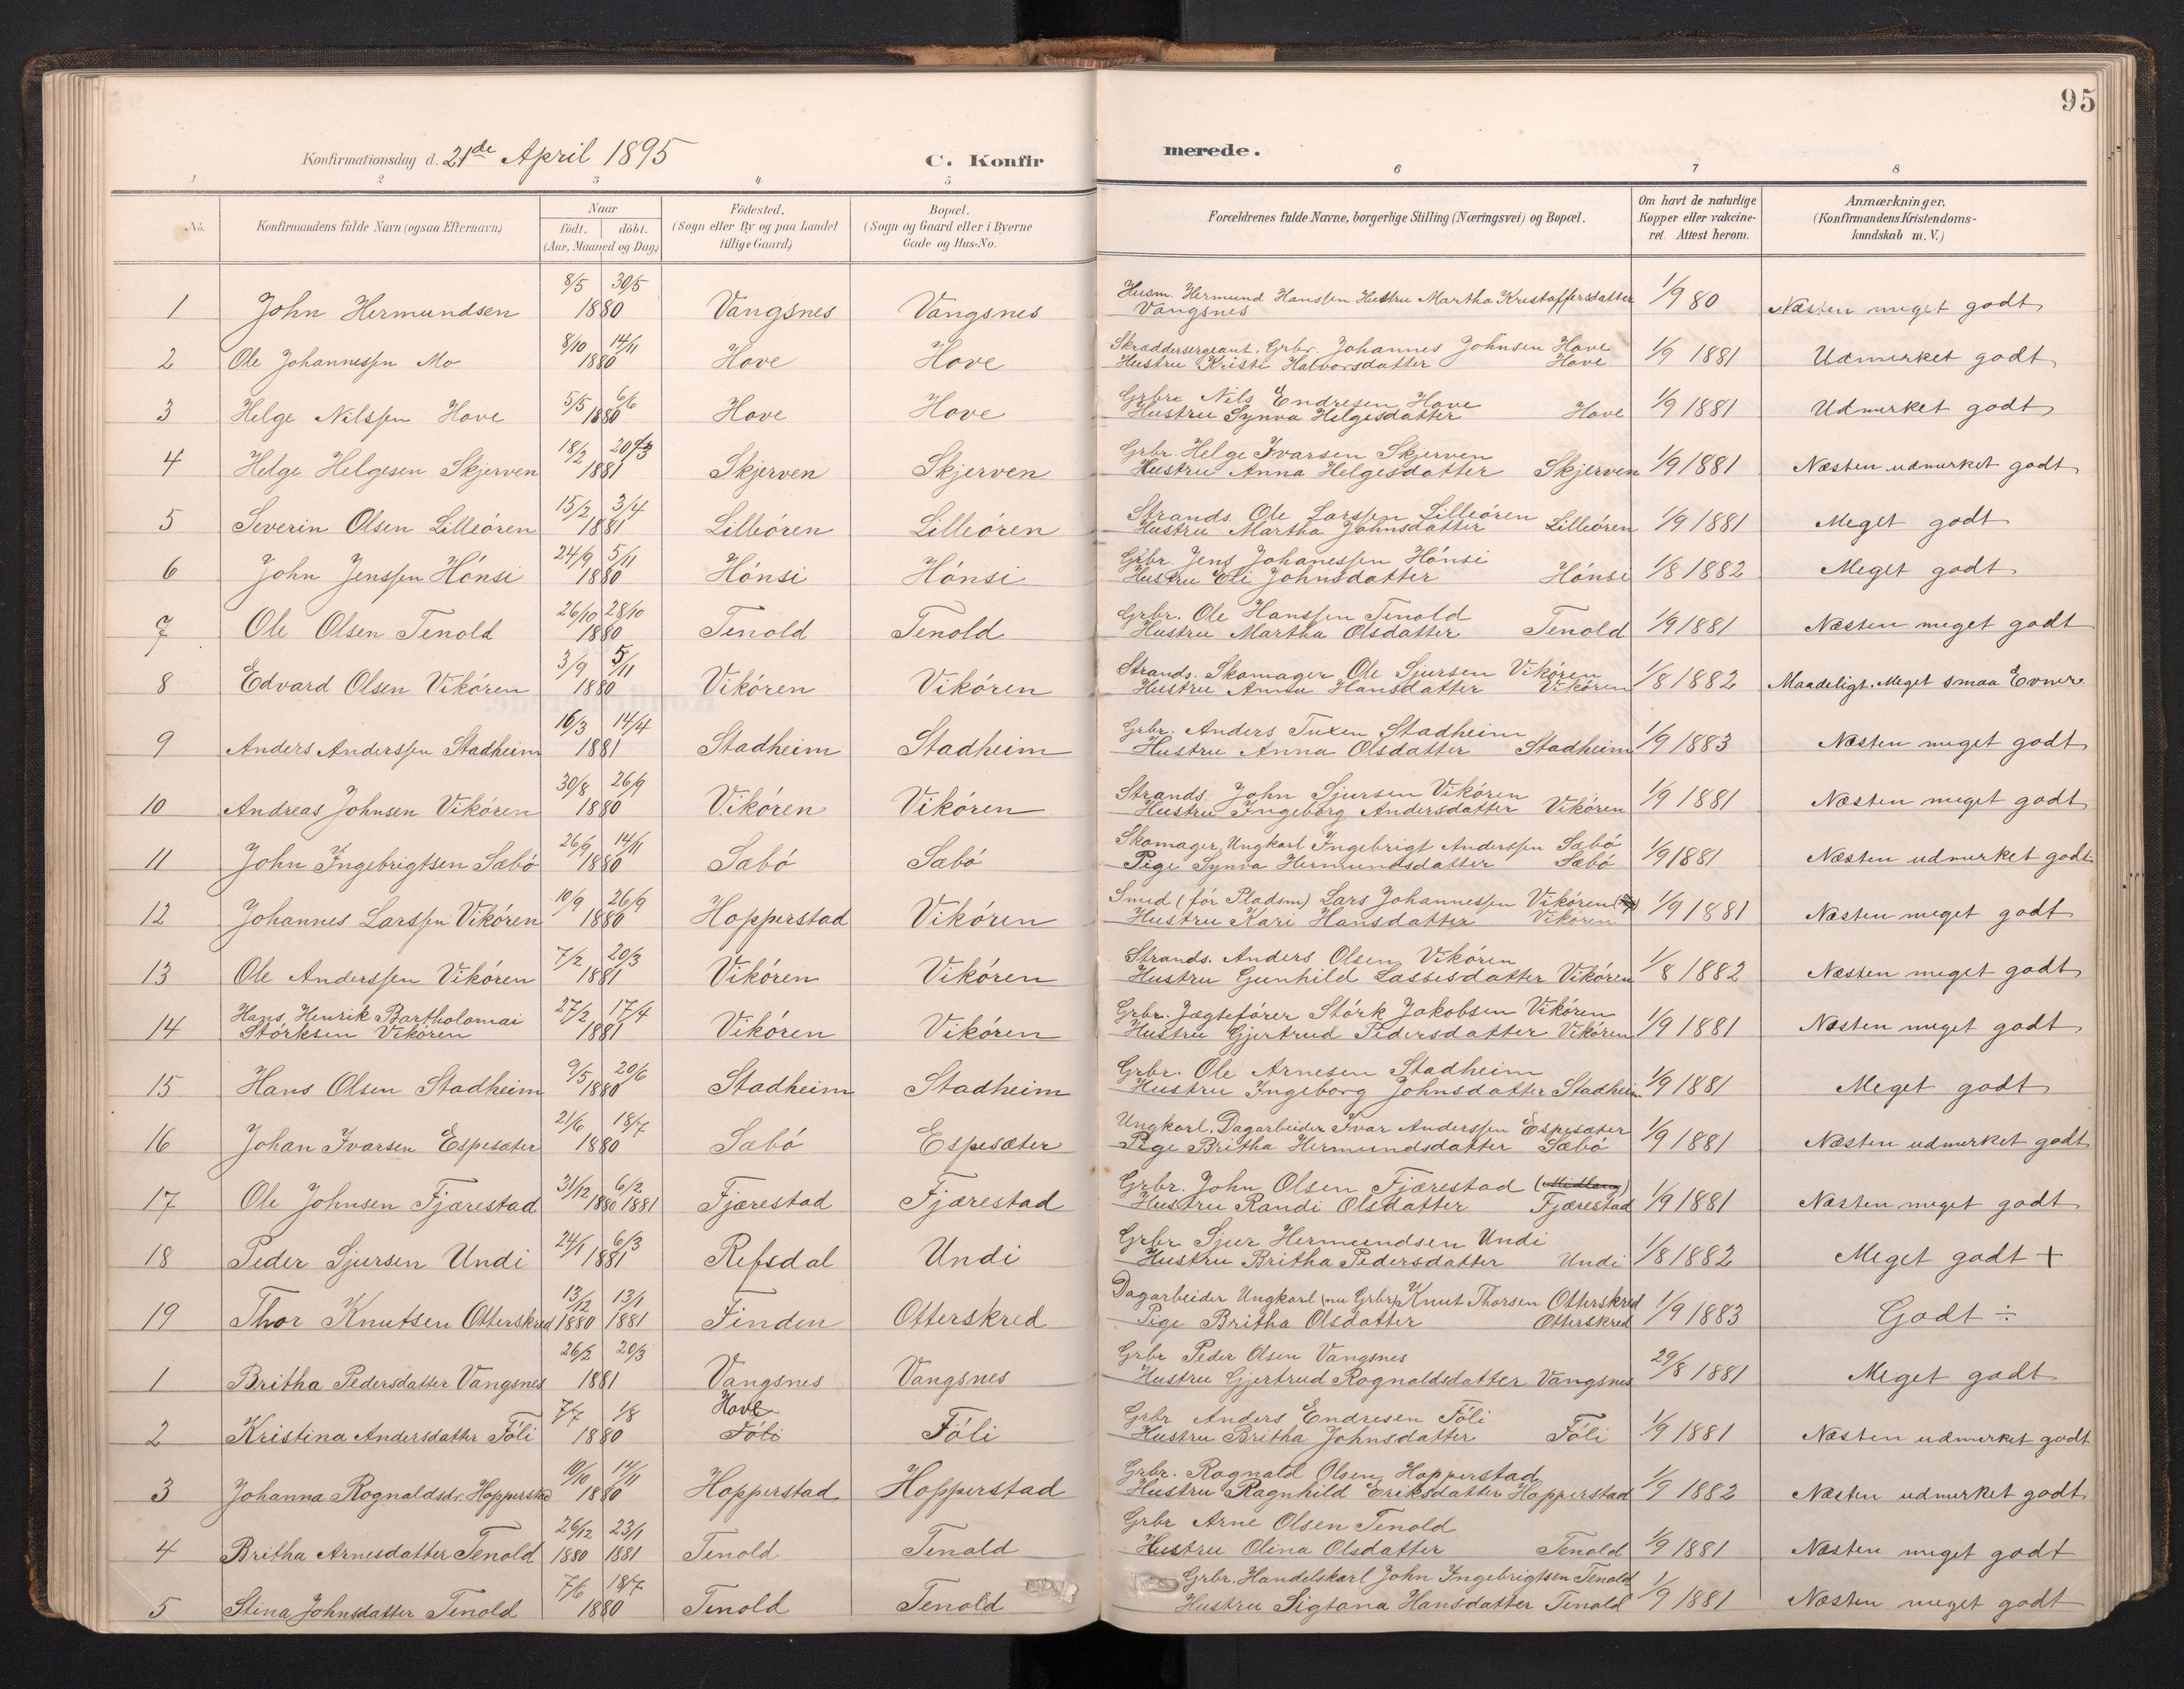 95
Konfirmationsdag d. 21de April 1895
C. Konfirmerede.
1 2 3 4 5 6 7 8
No.
Konfirmandens fulde Navn (ogsaa Efternavn)
Naar
født. døbt.
(Aar, Maaned og Dag)
Födested.
(Sogn eller By og paa Landet
tillige Gaard)
Bopæl.
(Sogn og Gaard eller i Byerne
Gade og Hus-No.
Forældrenes fulde Navne, borgerlige Stilling (Næringsvei) og Bopæl.
Om havt de naturlige
Kopper eller vakcine-
ret. Attest herom.
Anmærkninger.
(Konfirmandens Kristendoms-
kundskab m. V.)
8/5 30/5
1 John Hermundsen 1880 Vangsnes Vangsnes
Husm. Hermund Hanssen Hustru Martha Kristoffersdatter
Vangsnes 1/9 80 Næsten meget godt
8/10 14/11
2 Ole Johannessen Mo 1880 Hove Hove
Skraddersergeant. Grbr. Johannes Johnsen Hove
Hustru Kristi Halvorsdatter Hove 1/9 1881 Udmerket godt
5/5 6/6
3 Helge Nilssen Hove 1880 Hove Hove
Grbr. Nils Endresen Hove
Hustru Synva Helgesdatter Hove 1/9 1881 Udmerket godt
18/2 20/3
4 Helge Helgesen Skjerven 1881 Skjerven Skjerven
Grbr Helge Ivarsen Skjerven
Hustru Anna Helgesdatter Skjerven 1/9 1881 Næsten udmerket godt
15/2 3/4
5 Severin Olsen Lilleóren 1881 Lilleóren Lilleóren
Strands. Ole Larssen Lilleóren
Hustru Martha Johnsdatter Lilleóren 1/9 1881 Meget godt
24/9 5/11
6 John Jenssen Hónsi 1880 Hónsi Hónsi
Grbr Jens Johanessen Hónsi
Hustru Eli Johnsdatter Hónsi 1/8 1882 Meget godt
26/10 28/10
7 Ole Olsen Tenold 1880 Tenold Tenold
Grbr. Ole Hanssen Tenold
Hustru Martha Olsdatter Tenold 1/9 1881 Næsten meget godt
3/9 5/11
8 Edvard Olsen Vikóren 1880 Vikóren Vikóren
Strands. Skomager Ole Sjursen Vikóren
Hustru Anna Hansdatter Vikóren 1/8 1882 Maadeligt. Meget smaa Evner
16/3 14/4
9 Anders Anderssen Stadheim 1881 Stadheim Stadheim
Grbr. Anders Tuxen Stadheim
Hustru Anna Olsdatter Stadheim 1/9 1883 Næsten meget godt
30/8 26/9
10 Andreas Johnsen Vikóren 1880 Vikóren Vikóren
Strands. John Sjursen Vikóren
Hustru Ingeborg Andersdatter Vikóren 1/9 1881 Næsten meget godt
26/9 14/11
11 John Ingebrigtsen Sæbó 1880 Sæbó Sæbó
Skomager, Ungkarl Ingebrigt Anderssen Sæbó
Pige Synva Hermundsdatter Sæbó 1/9 1881 Næsten udmerket godt
10/9 26/9
12 Johannes Larssen Vikóren 1880 Hopperstad Vikóren
Smed (fór Pladsm) Lars Johannessen Vikóren
Hustru Kari Hansdatter Vikóren 1/9 1881 Næsten meget godt
7/2 20/3
13 Ole Anderssen Vikóren 1881 Vikóren Vikóren
Strands. Anders Olsen Vikóren
Hustru Gunhild Lassesdatter Vikóren 1/8 1882 Næsten meget godt
27/2 17/4
14 Hans Henrik Bartholomai
Stórksen Vikóren 1881 Vikóren Vikóren
Grbr. Jægtefórer Stórk Jakobsen Vikóren
Hustru Gjertrud Pedersdatter Vikóren 1/9 1881 Næsten meget godt
9/5 20/6
15 Hans Olsen Stadheim 1880 Stadheim Stadheim
Grbr. Ole Arnesen Stadheim
Hustru Ingeborg Johnsdatter Stadheim 1/9 1881 Meget godt
21/6 18/7
16 Johan Ivarsen Espesæter 1880 Sæbó Espesæter
Ungkarl. Dagarbeider Ivar Anderssen Espesæter
Pige Britha Hermundsdatter Sæbó 1/9 1881 Næsten udmerket godt
31/12 6/2
17 Ole Johnsen Fjærestad 1880 1881 Fjærestad Fjærestad
Grbr. John Olsen Fjærestad (Midlang)
Hustru Randi Olsdatter Fjærestad 1/9 1881 Næsten meget godt
24/1 6/3
18 Peder Sjursen Undi 1881 Refsdal Undi
Grbr Sjur Hermundsen Undi
Hustru Britha Pedersdatter Undi 1/8 1882 Meget godt +
13/12 13/1
19 Thor Knutsen Otterskred 1880 1881 Finden Otterskred
Dagarbeider Ungkarl (nu Grbr) Knut Thorsen Otterskred
Pige Britha Olsdatter Otterskred 1/9 1883 Godt ÷
26/2 20/3
1 Britha Pedersdatter Vangsnes 1881 Vangsnes Vangsnes
Grbr Peder Olsen Vangsnes
Hustru Gjertrud Rognaldsdatter Vangsnes 29/8 1881 Meget godt
7/7 1/8 Hove
2 Kristina Andersdatter Fóli 1880 Fóli Fóli
Grbr Anders Endresen Fóli
Hustru Britha Johnsdatter Fóli 1/9 1881 Næsten udmerket godt
10/10 14/11
3 Johanna Rognaldsdr. Hopperstad 1880 Hopperstad Hopperstad
Grbr. Rognald Olsen Hopperstad
Hustru Ragnhild Eriksdatter Hopperstad 1/9 1882 Næsten udmerket godt
26/12 23/1
4 Britha Arnesdatter Tenold 1880 1881 Tenold Tenold
Grbr Arne Olsen Tenold
Hustru Olina Olsdatter Tenold 1/9 1881 Næsten meget godt
7/6 18/7
5 Stina Johnsdatter Tenold 1880 Tenold Tenold
Grbr. Handelskarl John Ingebrigtsen Tenold
Hustru Sigtona Hansdatter Tenold 1/9 1881 Næsten meget godt